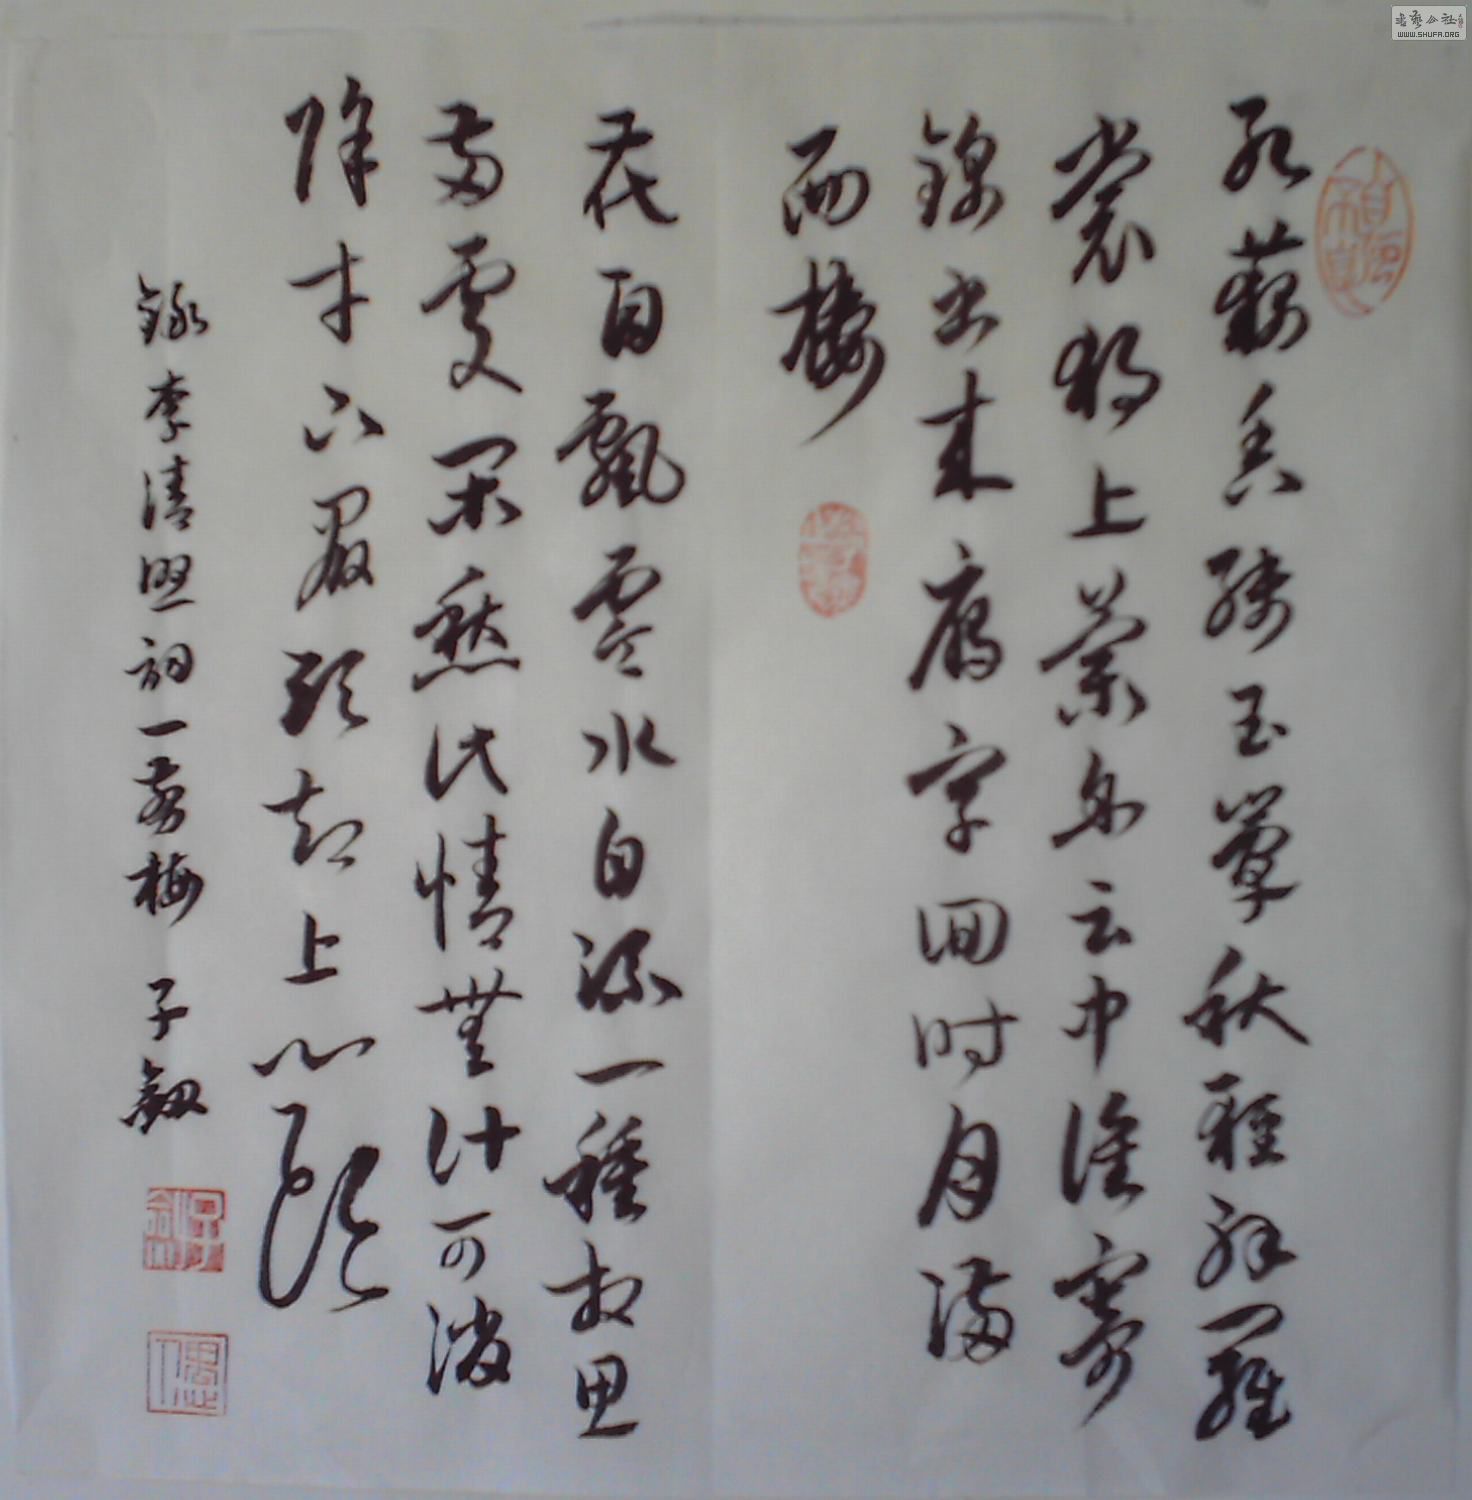 红藕香残玉簟秋轻解羅
裳独上蘭舟云中谁寄
錦书来雁字回时月满
西楼
花自飄零水自流一種相思
两處閑愁此情無計可消
除才下眉头却上心头
錄李清照詞一剪梅 子釼
书艺公社
WWW.SHUFA.ORG